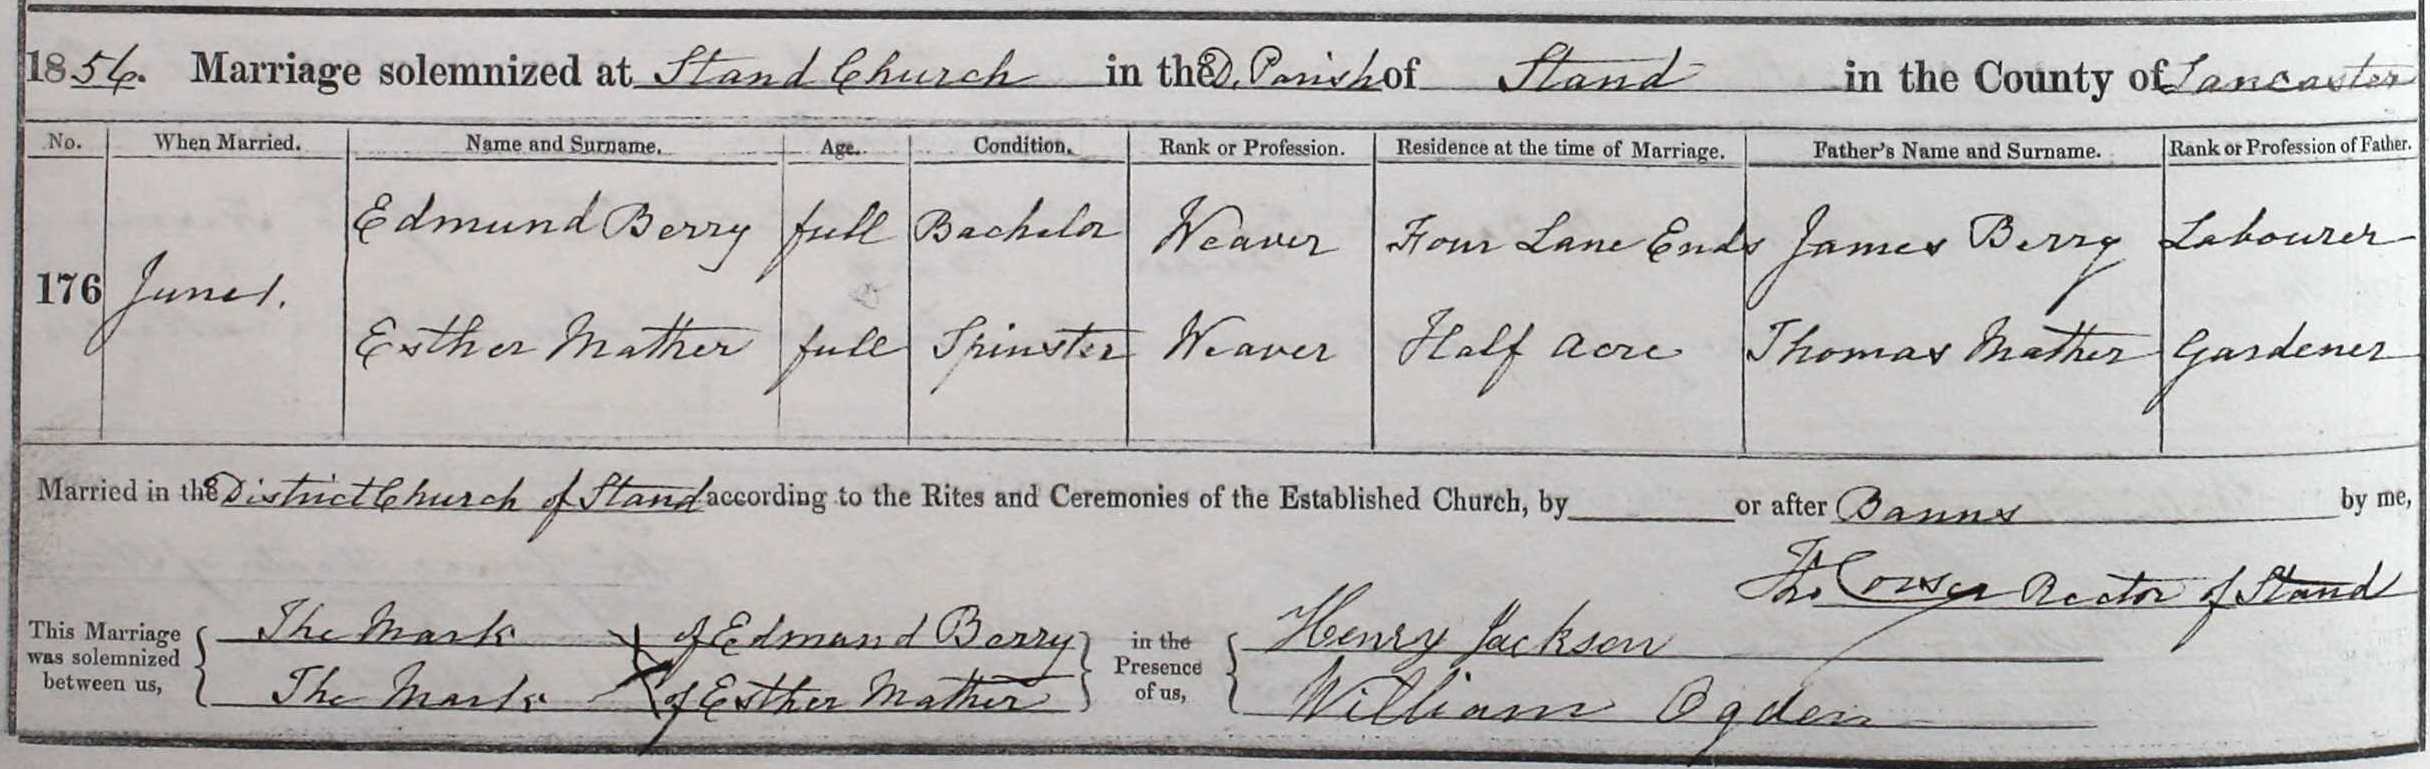 1856. Marriage solemnized at Stand Church in the D. Parish of Stand in the County of Lancaster
No. When Married. Name and Surname. Age. Condition. Rank or Profession. Residence at the time of Marriage. Father's Name and Surname. Rank or Profession of Father.
Edmund Berry full Bachelor Weaver Four Lane Ends James Berry Labourer
176 June 1.
Esther Mather full Spinster Weaver Half Acre Thomas Mather Gardener
Married in the District Church of Stand according to the Rites and Ceremonies of the Established Church, by or after Banns by me,
Thos. Corser Rector of Stand
This Marriage was solemnized between us, The Mark X of Edmund Berry in the Presence of us, Henry Jackson
The Mark X of Esther Mather William Ogden